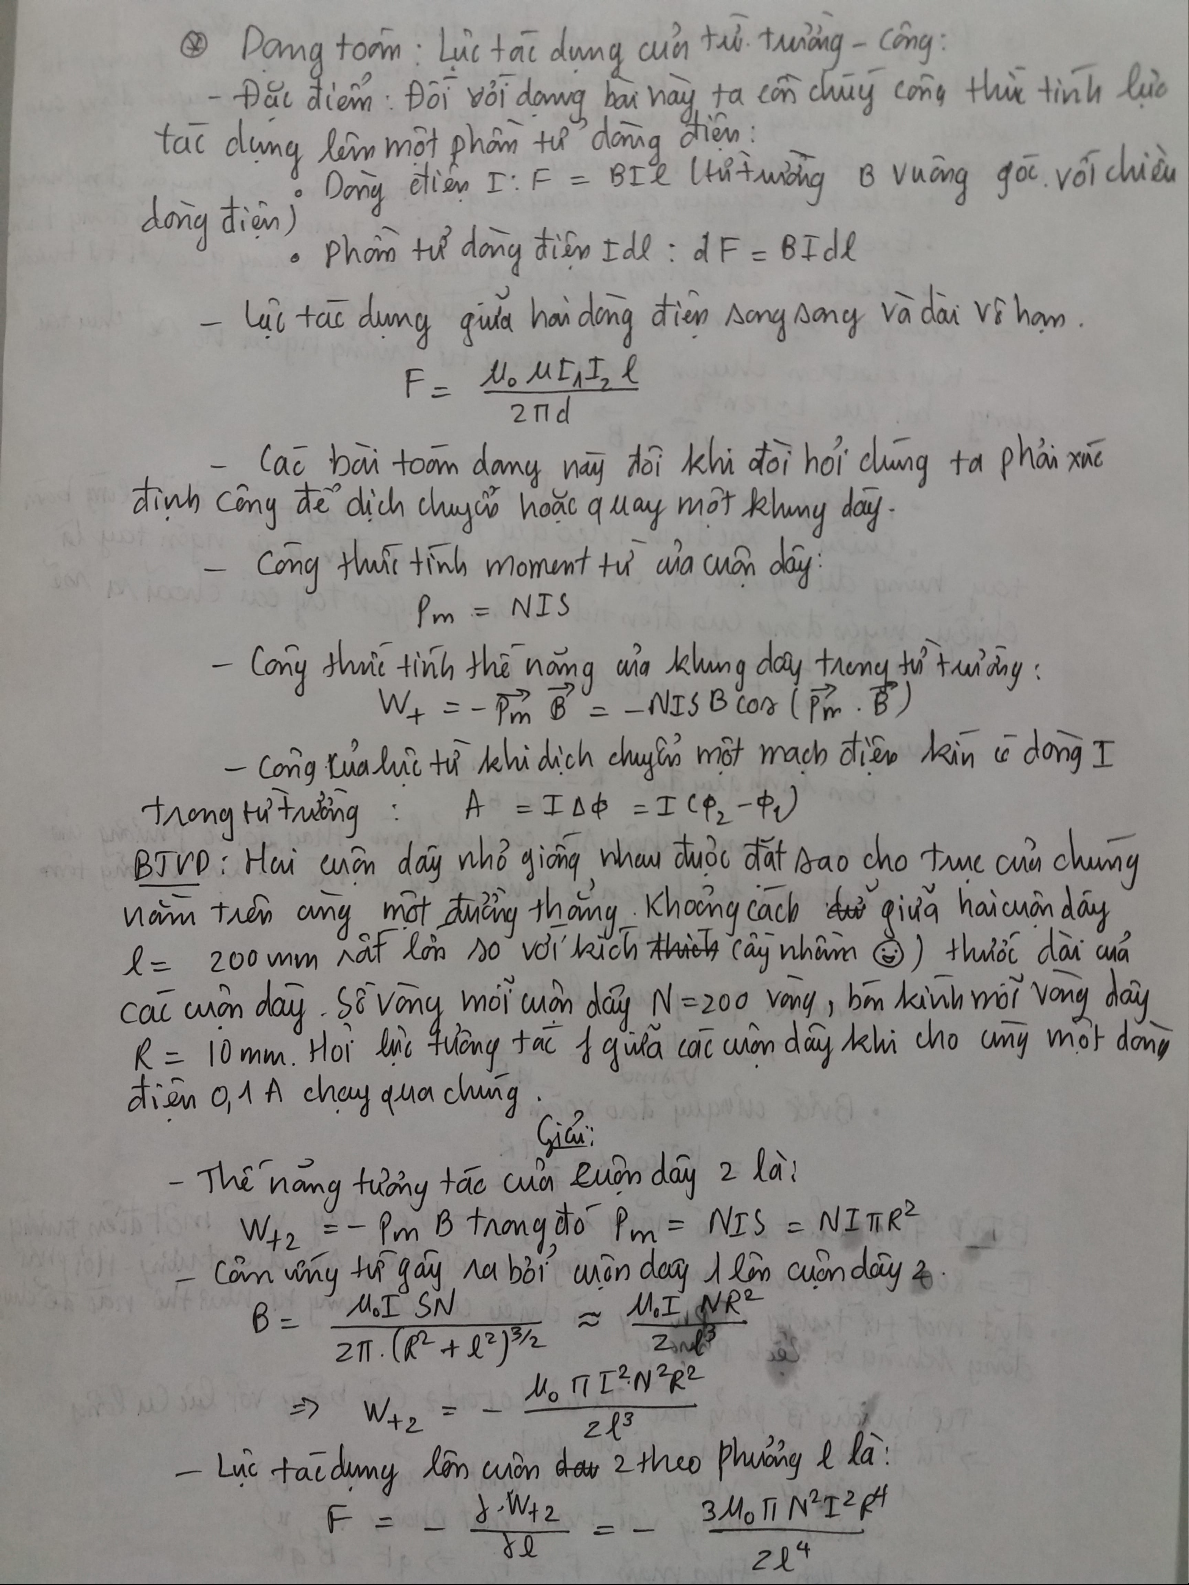 ⊛ Dạng toán: Lực tác dụng của từ trường - Công:
- Đặc điểm: Đối với dạng bài này ta cần chú ý công thức tính lực
tác dụng lên một phần tử dòng điện:
• Dòng điện I: F = BIl (từ trường B vuông góc với chiều
dòng điện)
• Phần tử dòng điện Idl: dF = BIdl
- Lực tác dụng giữa hai dòng điện song song và dài vô hạn.
F = μ₀ μI₁I₂ l / 2πd
- Các bài toán dạng này đôi khi đòi hỏi chúng ta phải xác
định công để dịch chuyển hoặc quay một khung dây.
- Công thức tính moment từ của cuộn dây:
Pm = NIS
- Công thức tính thế năng của khung dây trong từ trường:
Wt = -Pm B = -NISB cos (Pm . B)
- Công của lực từ khi dịch chuyển một mạch điện kín có dòng I
trong từ trường : A = IΔϕ = I(ϕ₂-ϕ₁)
BTVD: Hai cuộn dây nhỏ giống nhau được đặt sao cho trục của chúng
nằm trên cùng một đường thẳng. Khoảng cách giữa hai cuộn dây
l = 200mm rất lớn so với kích thích (ây nhầm 😀) thước dài của
các cuộn dây. Số vòng mỗi cuộn dây N=200 vòng, bán kính mỗi vòng dây
R = 10mm. Hỏi lực tương tác f giữa các cuộn dây khi cho cùng một dòng
điện 0,1A chạy qua chúng.
Giải:
- Thế năng tương tác của cuộn dây 2 là:
Wt2 = - Pm B trong đó Pm = NIS = NIπR²
- Cảm ứng từ gây ra bởi cuộn dây 1 lên cuộn dây 2.
B = μ₀I SN / 2π.(R²+l²)^3/2 ≈ μ₀I NR² / 2l³
=> Wt2 = - μ₀ πI²N²R² / 2l³
- Lực tác dụng lên cuộn 2 theo phương l là:
F = - ∂.Wt2 / ∂l = - 3μ₀πN²I²R⁴ / 2l⁴